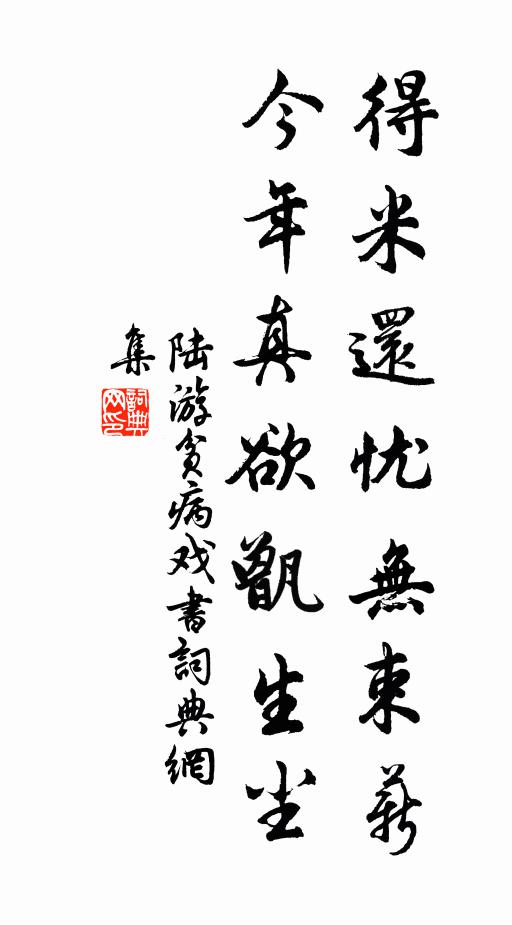 得米還忧無束薪
今年真欲甑生尘
陆游贫病戏書詞典網
集
詞典
网印